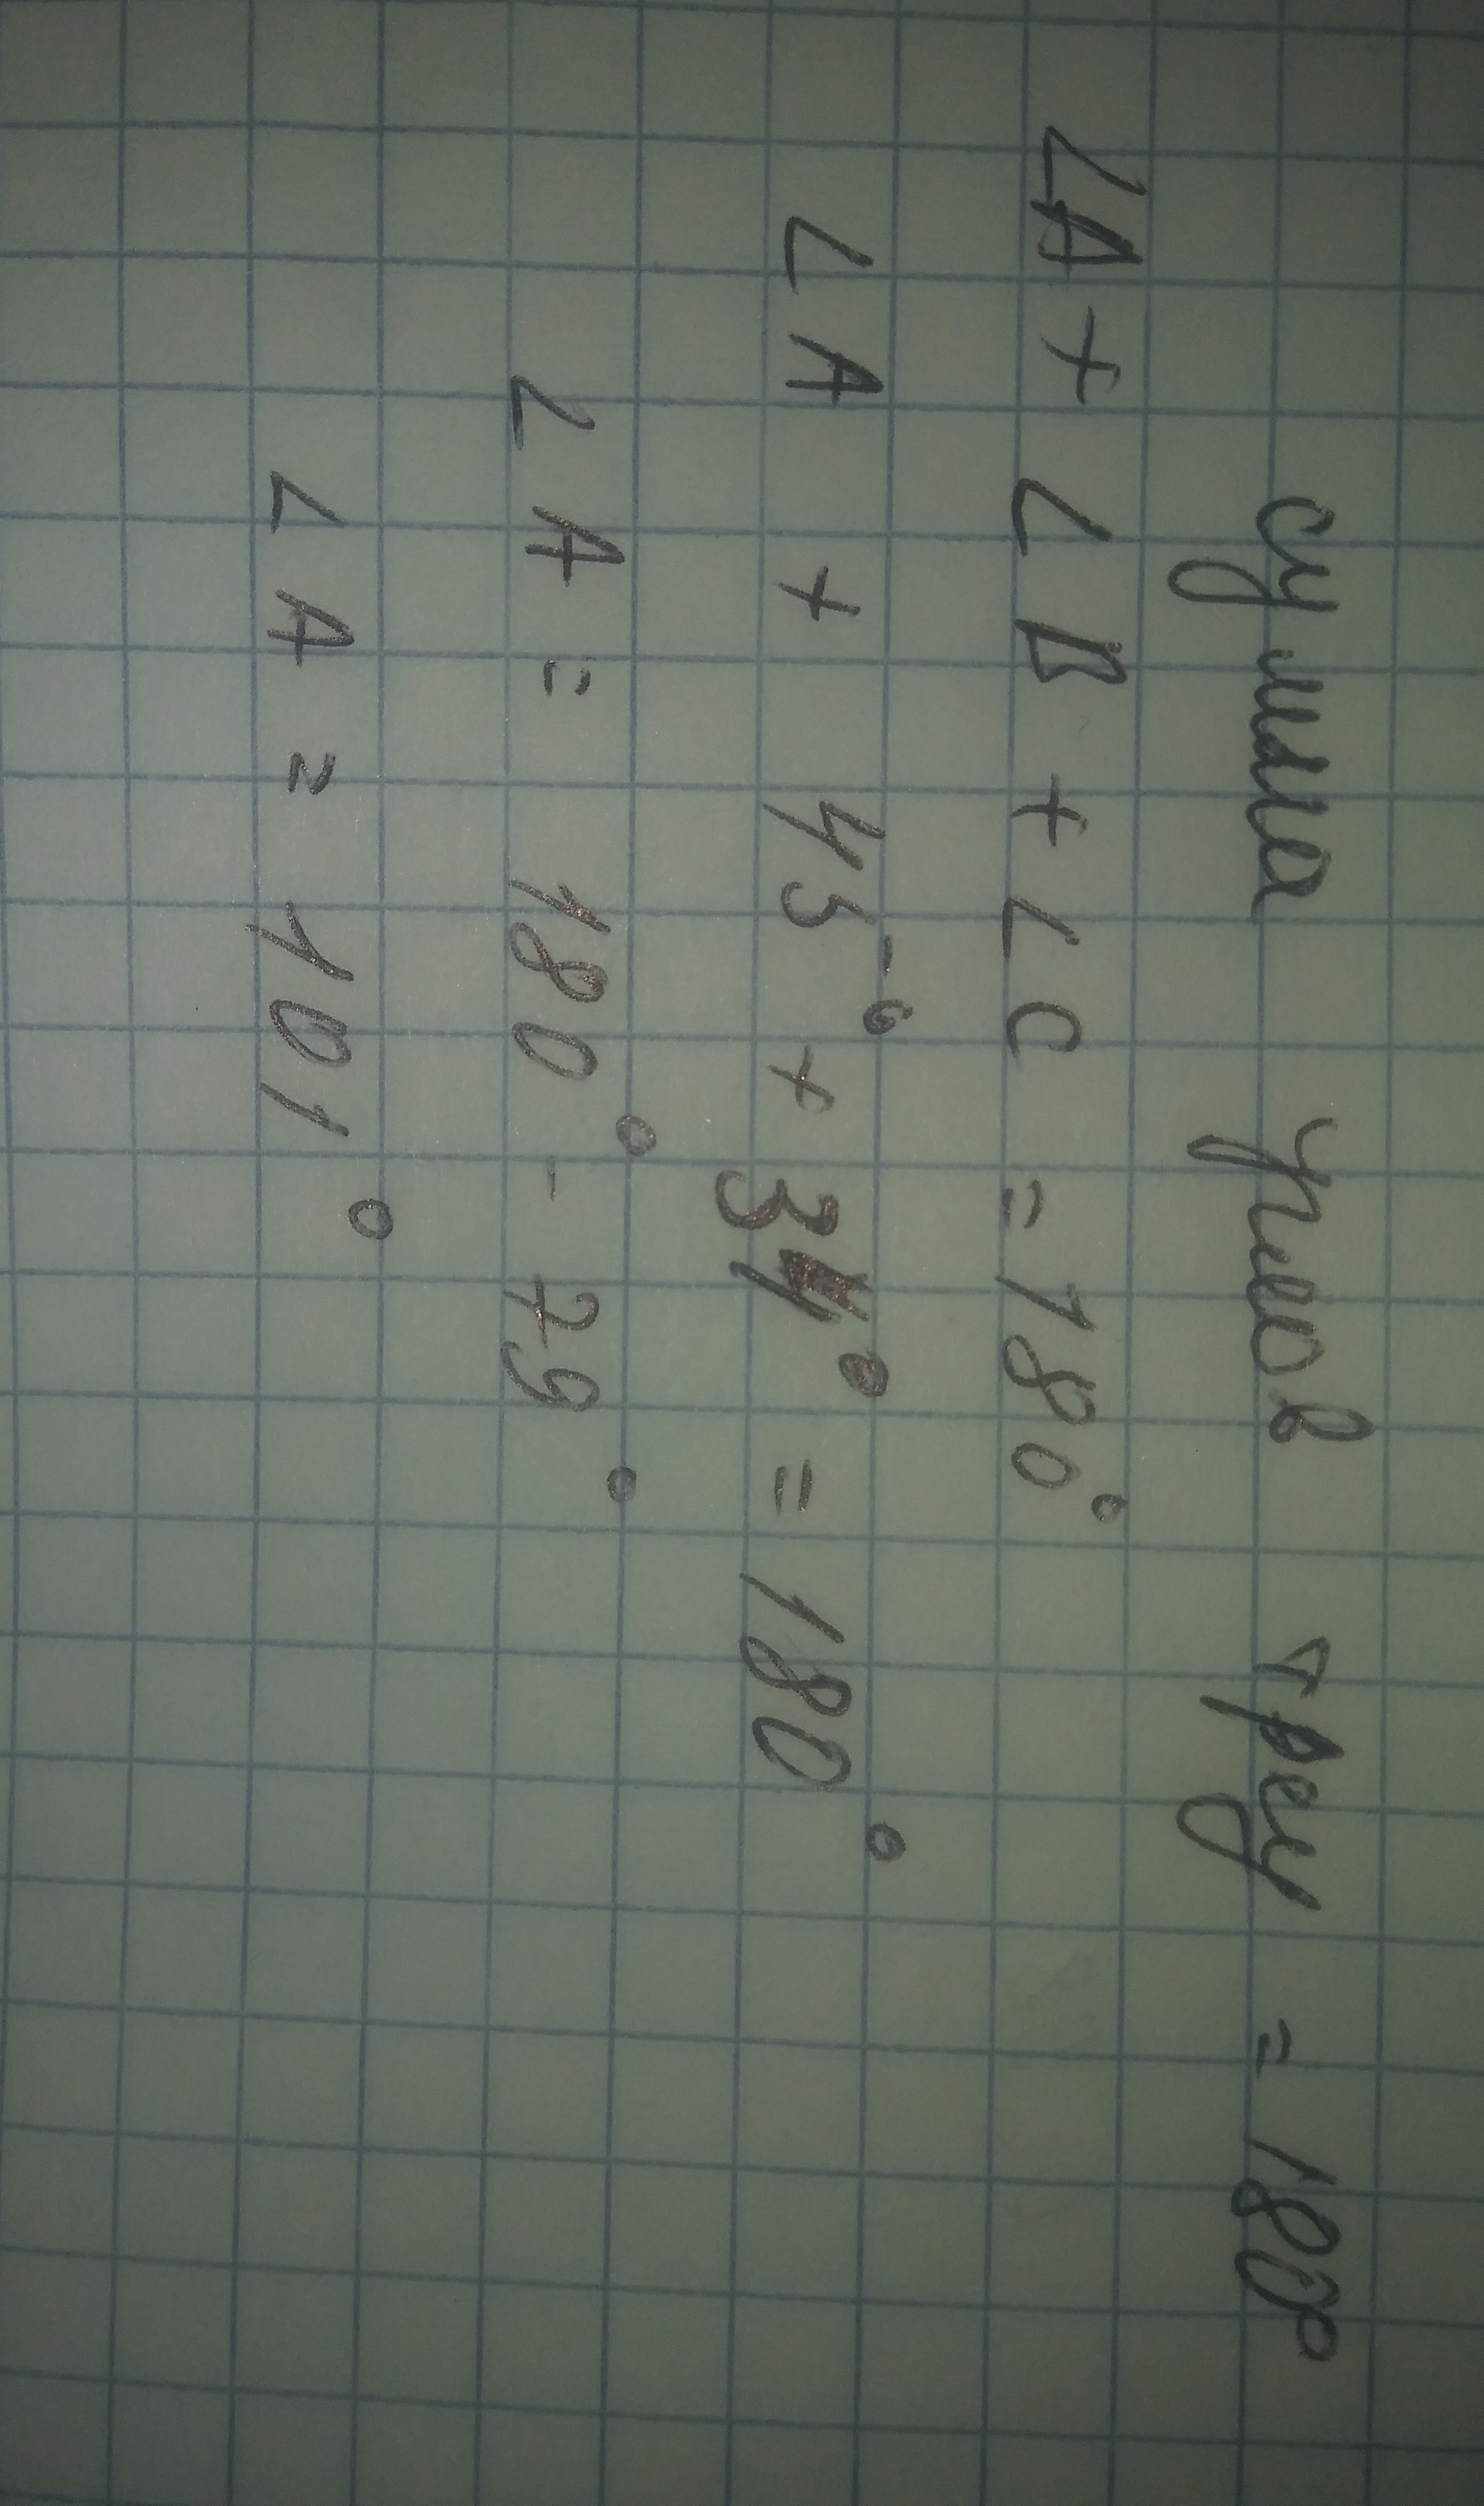 сумма углов треу = 180°
∠A + ∠B + ∠C = 180°
∠A + 45° + 34° = 180°
∠A = 180° - 79°
∠A = 101°